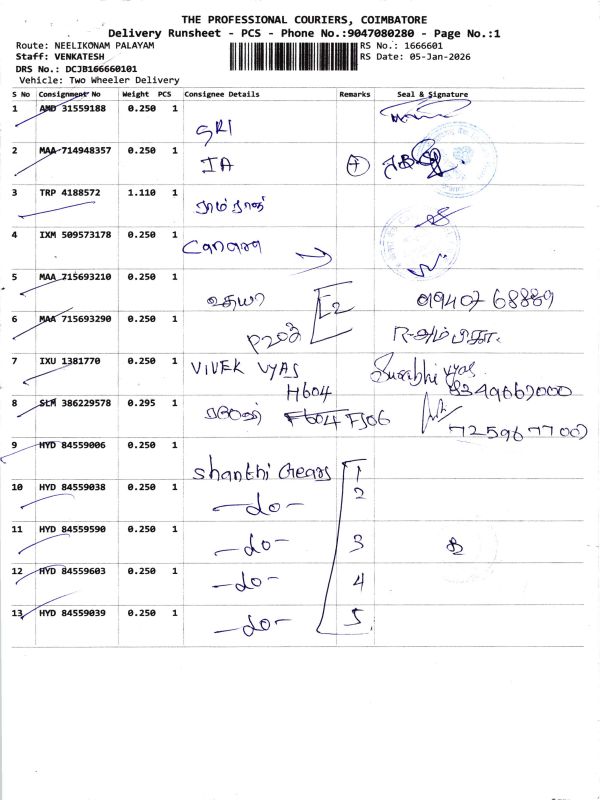 THE PROFESSIONAL COURIERS, COIMBATORE
Delivery Runsheet - PCS - Phone No.:9047080280 - Page No.:1
Route: NEELIKONAM PALAYAM RS No.: 1666601
Staff: VENKATESH RS Date: 05-Jan-2026
DRS No.: DCJB166660101
Vehicle: Two Wheeler Delivery
S No Consignment No Weight PCS Consignee Details Remarks Seal & Signature
1 AMD 31559188 0.250 1
SRI
2 MAA 714948357 0.250 1
IA
3 TRP 4188572 1.110 1
ராம்ராஜ்
4 IXM 509573178 0.250 1
Canara
5 MAA 715693210 0.250 1
உதயா E2
6 MAA 715693290 0.250 1
P203
7 IXU 1381770 0.250 1
VIVEK VYAS
H604
8 SLM 386229578 0.295 1
F604 FJ06
9 HYD 84559006 0.250 1
Shanthi Gears 1
10 HYD 84559038 0.250 1
-do- 2
11 HYD 84559590 0.250 1
-do- 3
12 HYD 84559603 0.250 1
-do- 4
13 HYD 84559039 0.250 1
-do- 5